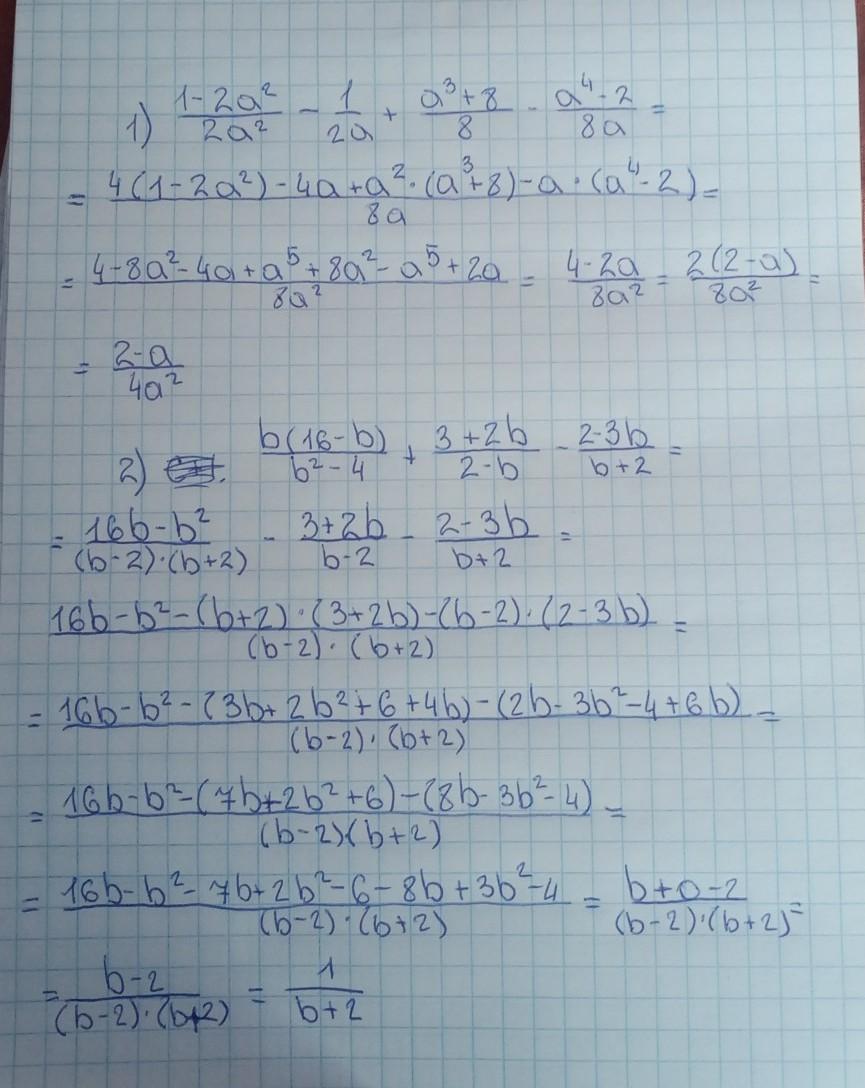 1) \frac{1-2a^2}{2a^2} - \frac{1}{2a} + \frac{a^3+8}{8} - \frac{a^4-2}{8a} =
= \frac{4(1-2a^2)-4a+a^2·(a^3+8)-a·(a^4-2)}{8a} =
= \frac{4-8a^2-4a+a^5+8a^2-a^5+2a}{8a^2} = \frac{4-2a}{8a^2} = \frac{2(2-a)}{8a^2} =
= \frac{2-a}{4a^2}
2) \frac{b(16-b)}{b^2-4} + \frac{3+2b}{2-b} - \frac{2-3b}{b+2} =
= \frac{16b-b^2}{(b-2)·(b+2)} - \frac{3+2b}{b-2} - \frac{2-3b}{b+2} =
\frac{16b-b^2-(b+2)·(3+2b)-(b-2)·(2-3b)}{(b-2)·(b+2)} =
= \frac{16b-b^2-(3b+2b^2+6+4b)-(2b-3b^2-4+6b)}{(b-2)·(b+2)} =
= \frac{16b-b^2-(7b+2b^2+6)-(8b-3b^2-4)}{(b-2)(b+2)} =
= \frac{16b-b^2-7b+2b^2-6-8b+3b^2-4}{(b-2)·(b+2)} = \frac{b+0-2}{(b-2)·(b+2)} =
= \frac{b-2}{(b-2)·(b+2)} = \frac{1}{b+2}